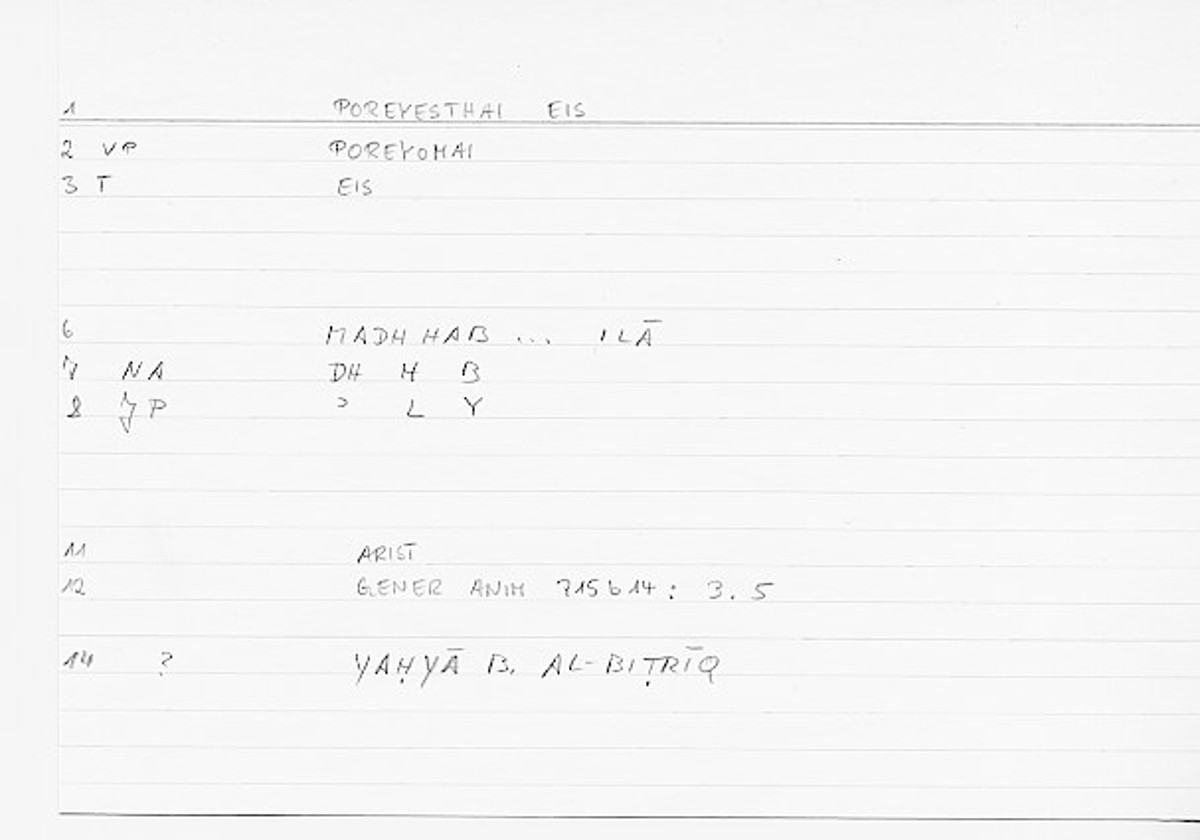 1 POREYESTHAI EIS
2 VP POREYOMAI
3 T EIS
6 MADHHAB ... ILĀ
7 NA DH H B
8 JP ʾ L Y
11 ARIST
12 GENER ANIM 715b14: 3.5
14 ? YAḤYĀ B. AL-BIṬRĪQ